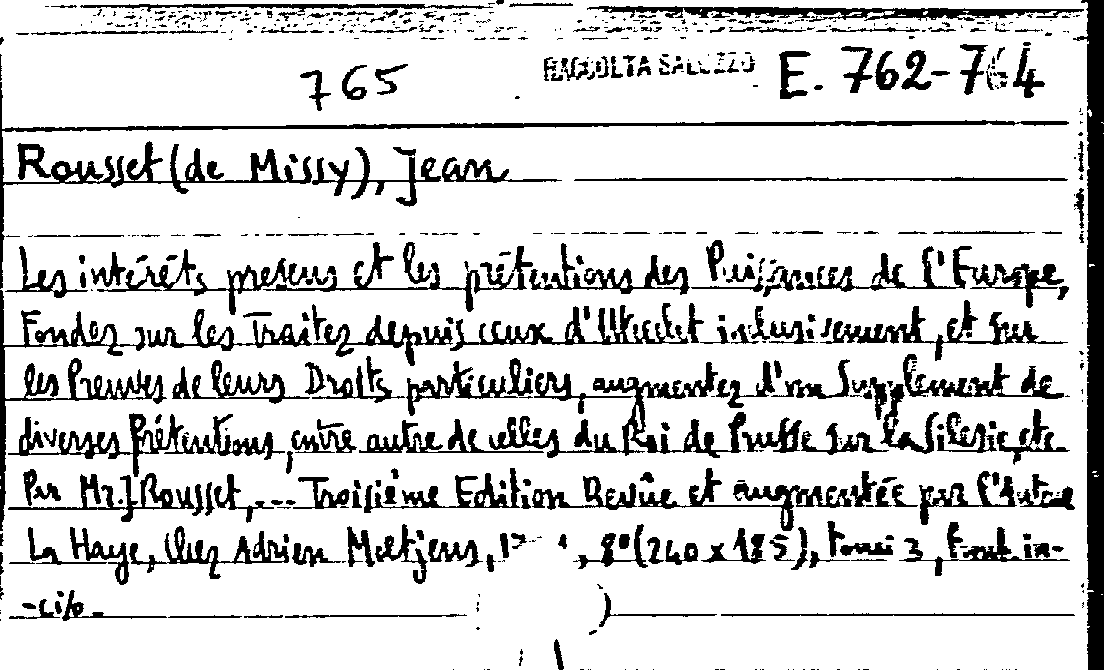 765 RACCOLTA SALUZZO E. 762-764
Rousset (de Missy), Jean
Les intérêts presens et les prétentions des Puissances de l'Europe,
Fondez sur les Traitez depuis ceux d'Utrecht inclusivement, et sur
les Preuves de leurs Droits particuliers, augmentez d'un Supplement de
diverses Prétentions, entre autre de celles du Roi de Prusse sur la Silesie, etc.
Par Mr. J Rousset, --- Troisième Edition Revûe et augmentée par l'Auteur
La Haye, Chez Adrien Moetjens, 8° (240 x 185), Tomi 3, Front. in-
-ciso.